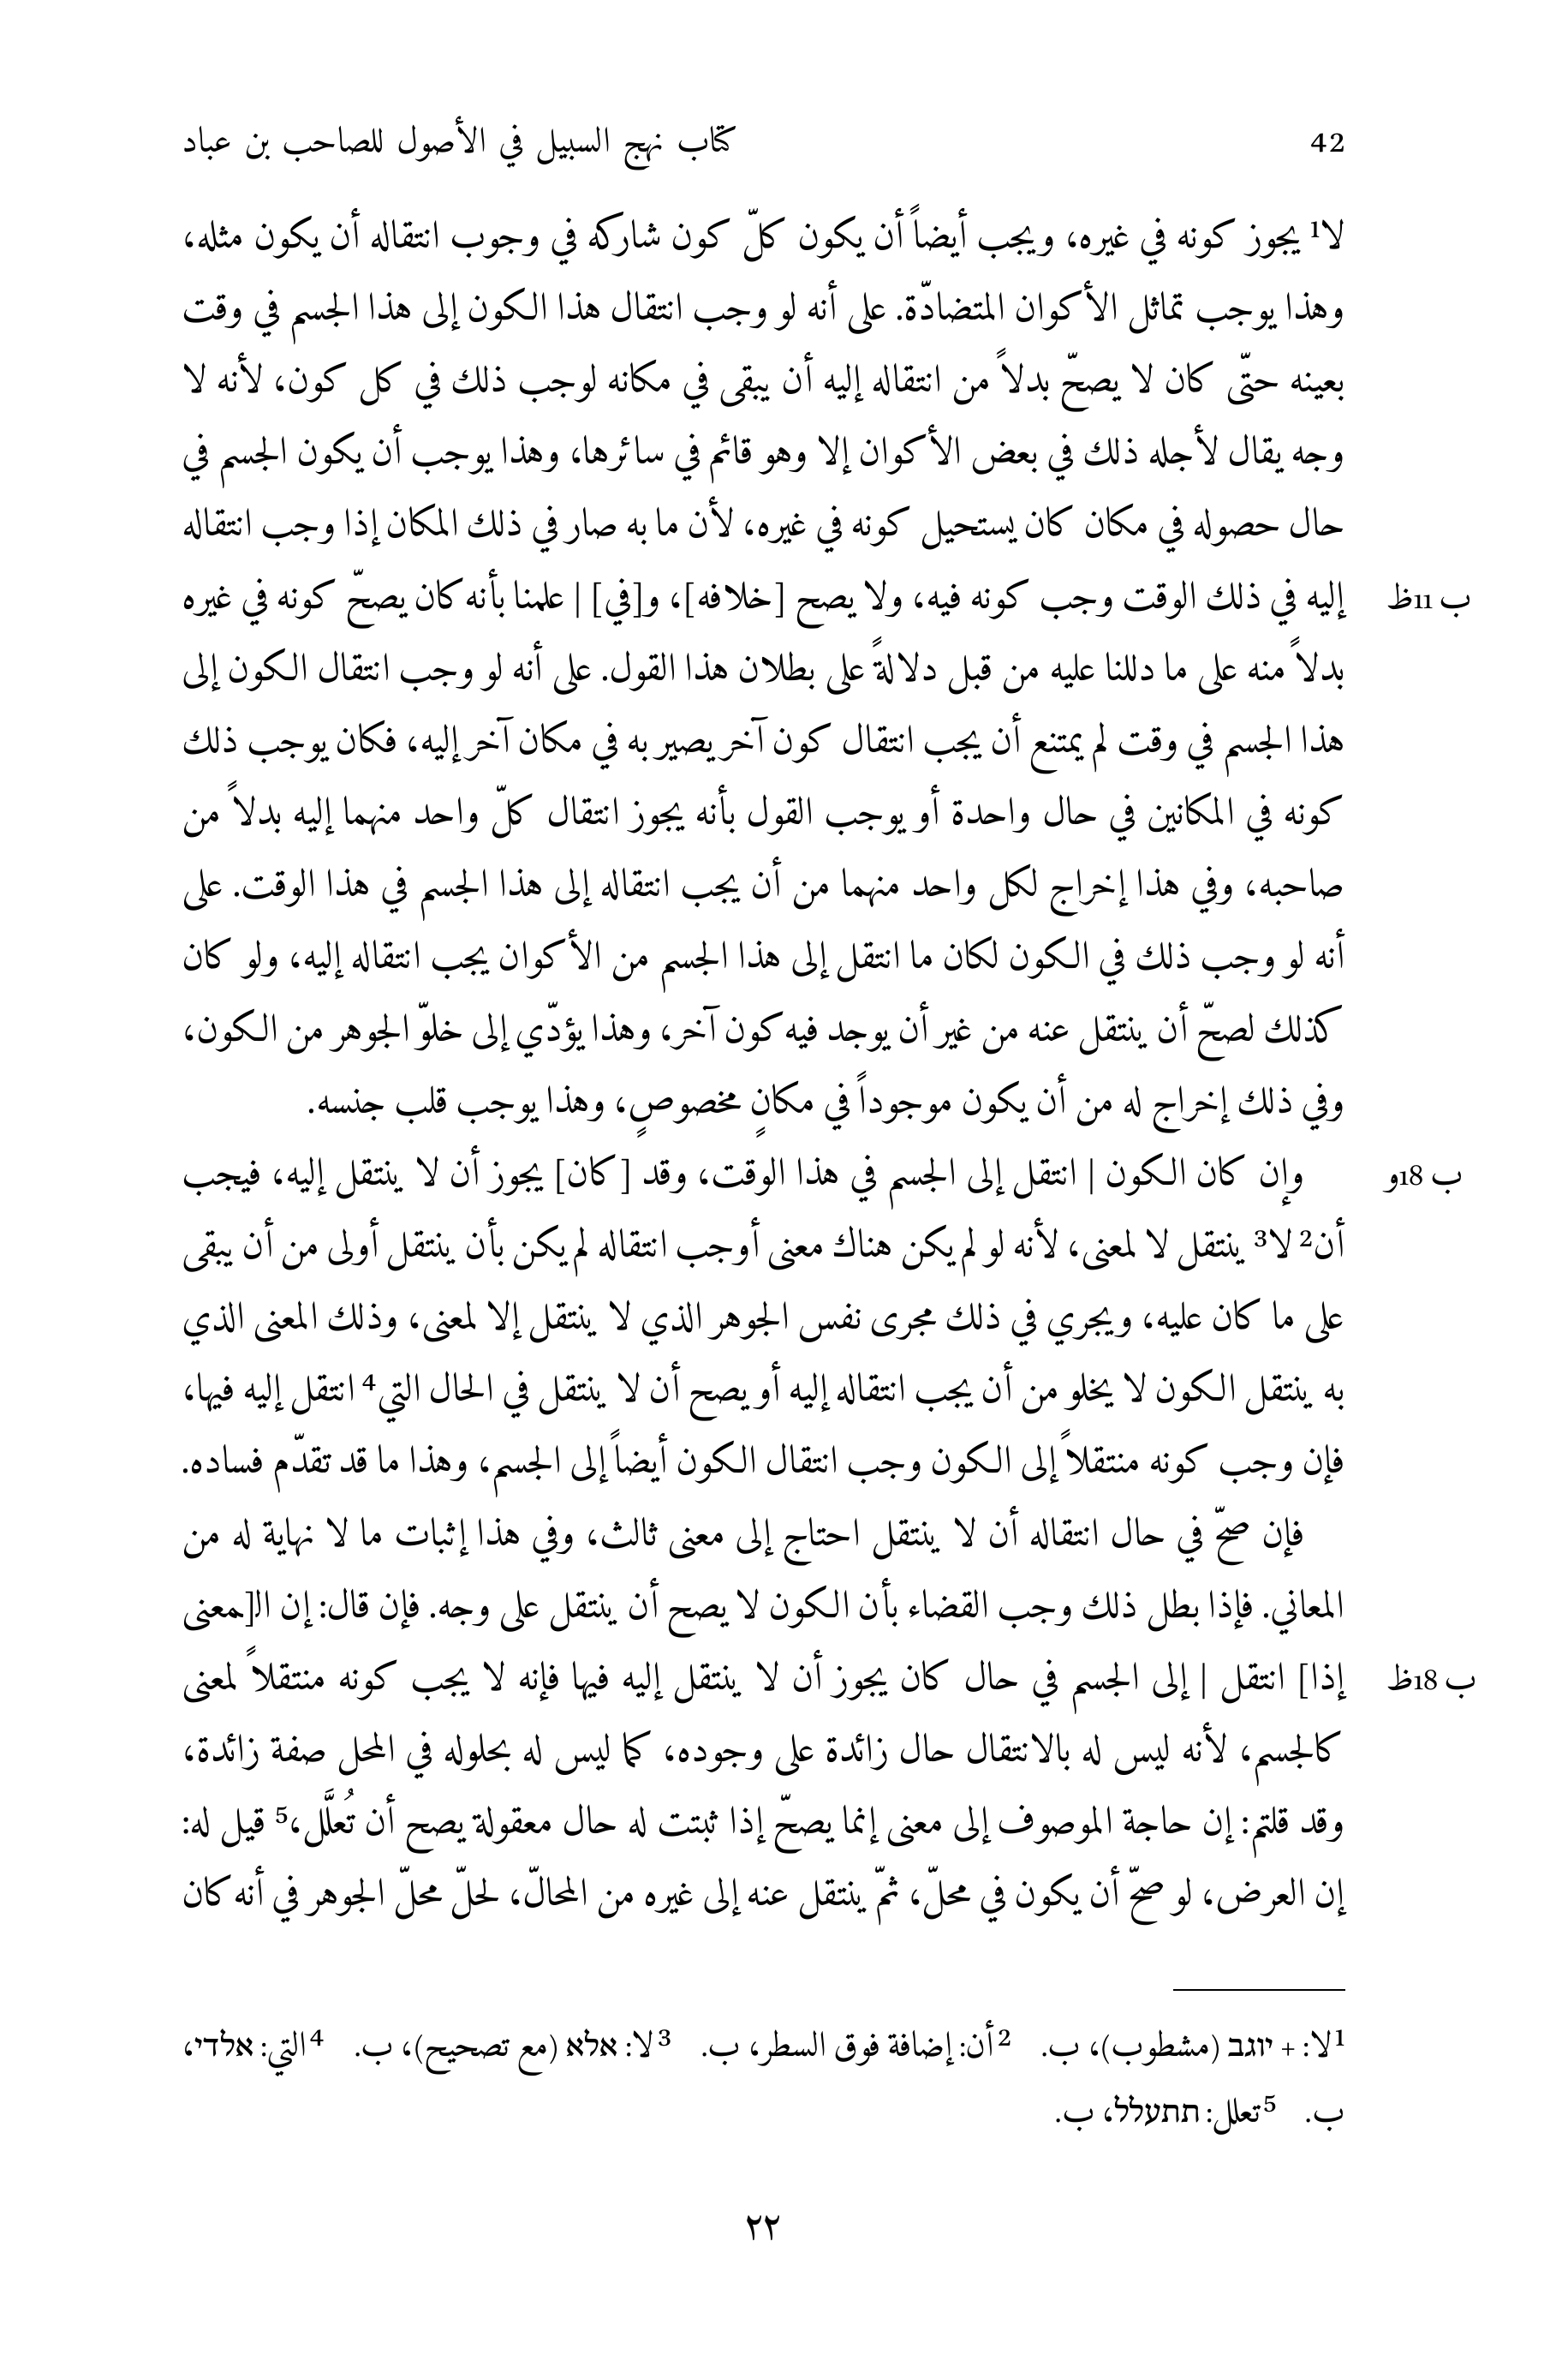 42 كتاب نهج السبيل في الأصول للصاحب بن عباد
لا1 يجوز كونه في غيره، ويجب أيضاً أن يكون كلّ كون شاركه في وجوب انتقاله أن يكون مثله،
وهذا يوجب تماثل الأكوان المتضادّة. على أنه لو وجب انتقال هذا الكون إلى هذا الجسم في وقت
بعينه حتّى كان لا يصحّ بدلاً من انتقاله إليه أن يبقى في مكانه لوجب ذلك في كل كون، لأنه لا
وجه يقال لأجله ذلك في بعض الأكوان إلا وهو قائم في سائرها، وهذا يوجب أن يكون الجسم في
حال حصوله في مكان كان يستحيل كونه في غيره، لأن ما به صار في ذلك المكان إذا وجب انتقاله
ب 11ظ إليه في ذلك الوقت وجب كونه فيه، ولا يصح [خلافه]، و[في] | علمنا بأنه كان يصحّ كونه في غيره
بدلاً منه على ما دللنا عليه من قبل دلالةً على بطلان هذا القول. على أنه لو وجب انتقال الكون إلى
هذا الجسم في وقت لم يمتنع أن يجب انتقال كون آخر يصير به في مكان آخر إليه، فكان يوجب ذلك
كونه في المكانين في حال واحدة أو يوجب القول بأنه يجوز انتقال كلّ واحد منهما إليه بدلاً من
صاحبه، وفي هذا إخراج لكل واحد منهما من أن يجب انتقاله إلى هذا الجسم في هذا الوقت. على
أنه لو وجب ذلك في الكون لكان ما انتقل إلى هذا الجسم من الأكوان يجب انتقاله إليه، ولو كان
كذلك لصحّ أن ينتقل عنه من غير أن يوجد فيه كون آخر، وهذا يؤدّي إلى خلوّ الجوهر من الكون،
وفي ذلك إخراج له من أن يكون موجوداً في مكانٍ مخصوصٍ، وهذا يوجب قلب جنسه.
ب 18و وإن كان الكون | انتقل إلى الجسم في هذا الوقت، وقد [كان] يجوز أن لا ينتقل إليه، فيجب
أن2 لا3 ينتقل لا لمعنى، لأنه لو لم يكن هناك معنى أوجب انتقاله لم يكن بأن ينتقل أولى من أن يبقى
على ما كان عليه، ويجري في ذلك مجرى نفس الجوهر الذي لا ينتقل إلا لمعنى، وذلك المعنى الذي
به ينتقل الكون لا يخلو من أن يجب انتقاله إليه أو يصح أن لا ينتقل في الحال التي4 انتقل إليه فيها،
فإن وجب كونه منتقلاً إلى الكون وجب انتقال الكون أيضاً إلى الجسم، وهذا ما قد تقدّم فساده.
فإن صحّ في حال انتقاله أن لا ينتقل احتاج إلى معنى ثالث، وفي هذا إثبات ما لا نهاية له من
المعاني. فإذا بطل ذلك وجب القضاء بأن الكون لا يصح أن ينتقل على وجه. فإن قال: إن الـ[ـمعنى
ب 18ظ إذا] انتقل | إلى الجسم في حال كان يجوز أن لا ينتقل إليه فيها فإنه لا يجب كونه منتقلاً لمعنى
كالجسم، لأنه ليس له بالانتقال حال زائدة على وجوده، كما ليس له بحلوله في المحل صفة زائدة،
وقد قلتم: إن حاجة الموصوف إلى معنى إنما يصحّ إذا ثبتت له حال معقولة يصح أن تُعلَّل،5 قيل له:
إن العرض، لو صحّ أن يكون في محلّ، ثمّ ينتقل عنه إلى غيره من المحالّ، لحلّ محلّ الجوهر في أنه كان
1 لا: + יוגב (مشطوب)، ب. 2 أن: إضافة فوق السطر، ب. 3 لا: אלא (مع تصحيح)، ب. 4 التي: אלדי،
ب. 5 تعلل: תתעלל، ب.
٢٢